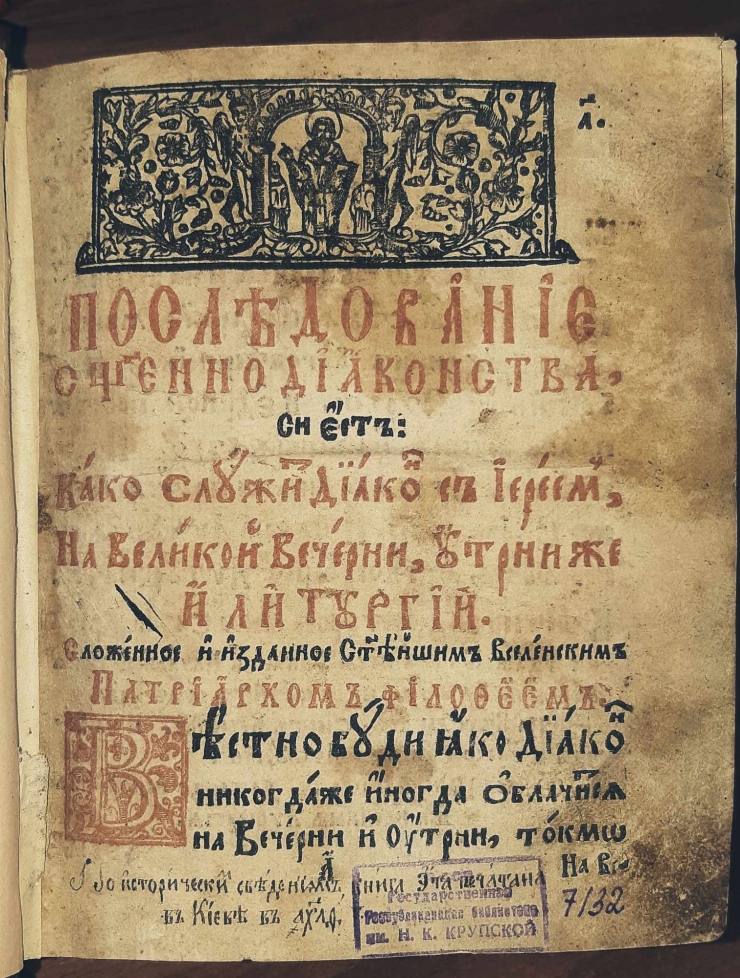 ҃а.
ПОСЛѢ́ДОВА́НЇЕ
СЩ҃ЕННОДЇА́КОНСТВА,
Си є҆́стъ:
Ка́ко служи́т Дїа́кон съ Їере́ем,
На Вели́кой Вече́рни, Ѹ҆́трни же
И҆ ЛИТУРГЇ́И.
Сложе́нное и҆ и҆зда́нное Ст҃ѣ́йшимъ Вселе́нскимъ
Патрїа́рхомъ Фїлоѳе́емъ.
Вѣ́стно бу́ди ꙗ҆́ко Дїа́кон
никогда́же и҆ногда ѡ҆блачится
на Вече́рни и҆ Оу҆́трни, то́кмѡ
На Ве-
По историчєски свѣдєнїямъ книга Эта пєчатана
въ Кїєвѣ въ
Государственная
Республиканская библиотека
им. Н. К. КРУПСКОЙ
7132